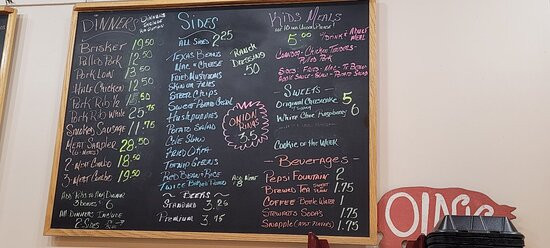 DINNERS
DINNERS
INCLUDE
Brisket 19.50
Pulled Pork 12.50
Pork Loin 13.50
Half Chicken 12.50
Pork Rib ½
Pork Rib Whole 25.75
Smoked Sausage 11.75
Meat Sampler 28.50
2-Meat Combo 18.50
3-Meat Combo 19.50
Add Ribs to Any Dinner
3 Bones 6
All Dinners Include
2 Sides
SIDES
ALL SIDES 2.25
Texas Beans
Mac & Cheese
Fried Mushrooms
Skin on Fries
Sweet Potato
Hushpuppies
Potato Salad
Cole Slaw
Fried Okra
Turnip Greens
Red Beans & Rice
Twice Baked Tater
Ranch
Dressing
.50
ONION
RINGS
3.5
- Beers -
Standard 3.25
Premium 3.75
KIDS MEALS
5.00
w/ DRINK & ADULT
MEAL
Chicken Tenders
Pulled Pork
- SWEETS -
Original Cheesecake 5
White Choc Raspberry 6
Cookie of the Week
- Beverages -
Pepsi Fountain 2
Brewed Tea Sweet 1.75
Coffee
Stewarts Sodas 1.75
Snapple 1.75
OINK